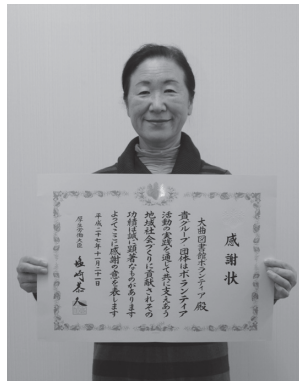 感謝状
大曲図書館ボランティア 殿
貴グループ・団体はボランティア
活動の実践を通して共に支えあう
地域社会づくりに貢献されその
功績は誠に顕著なものがあります
よってここに感謝の意を表します
平成二十七年十一月二十一日
厚生労働大臣 塩崎恭久